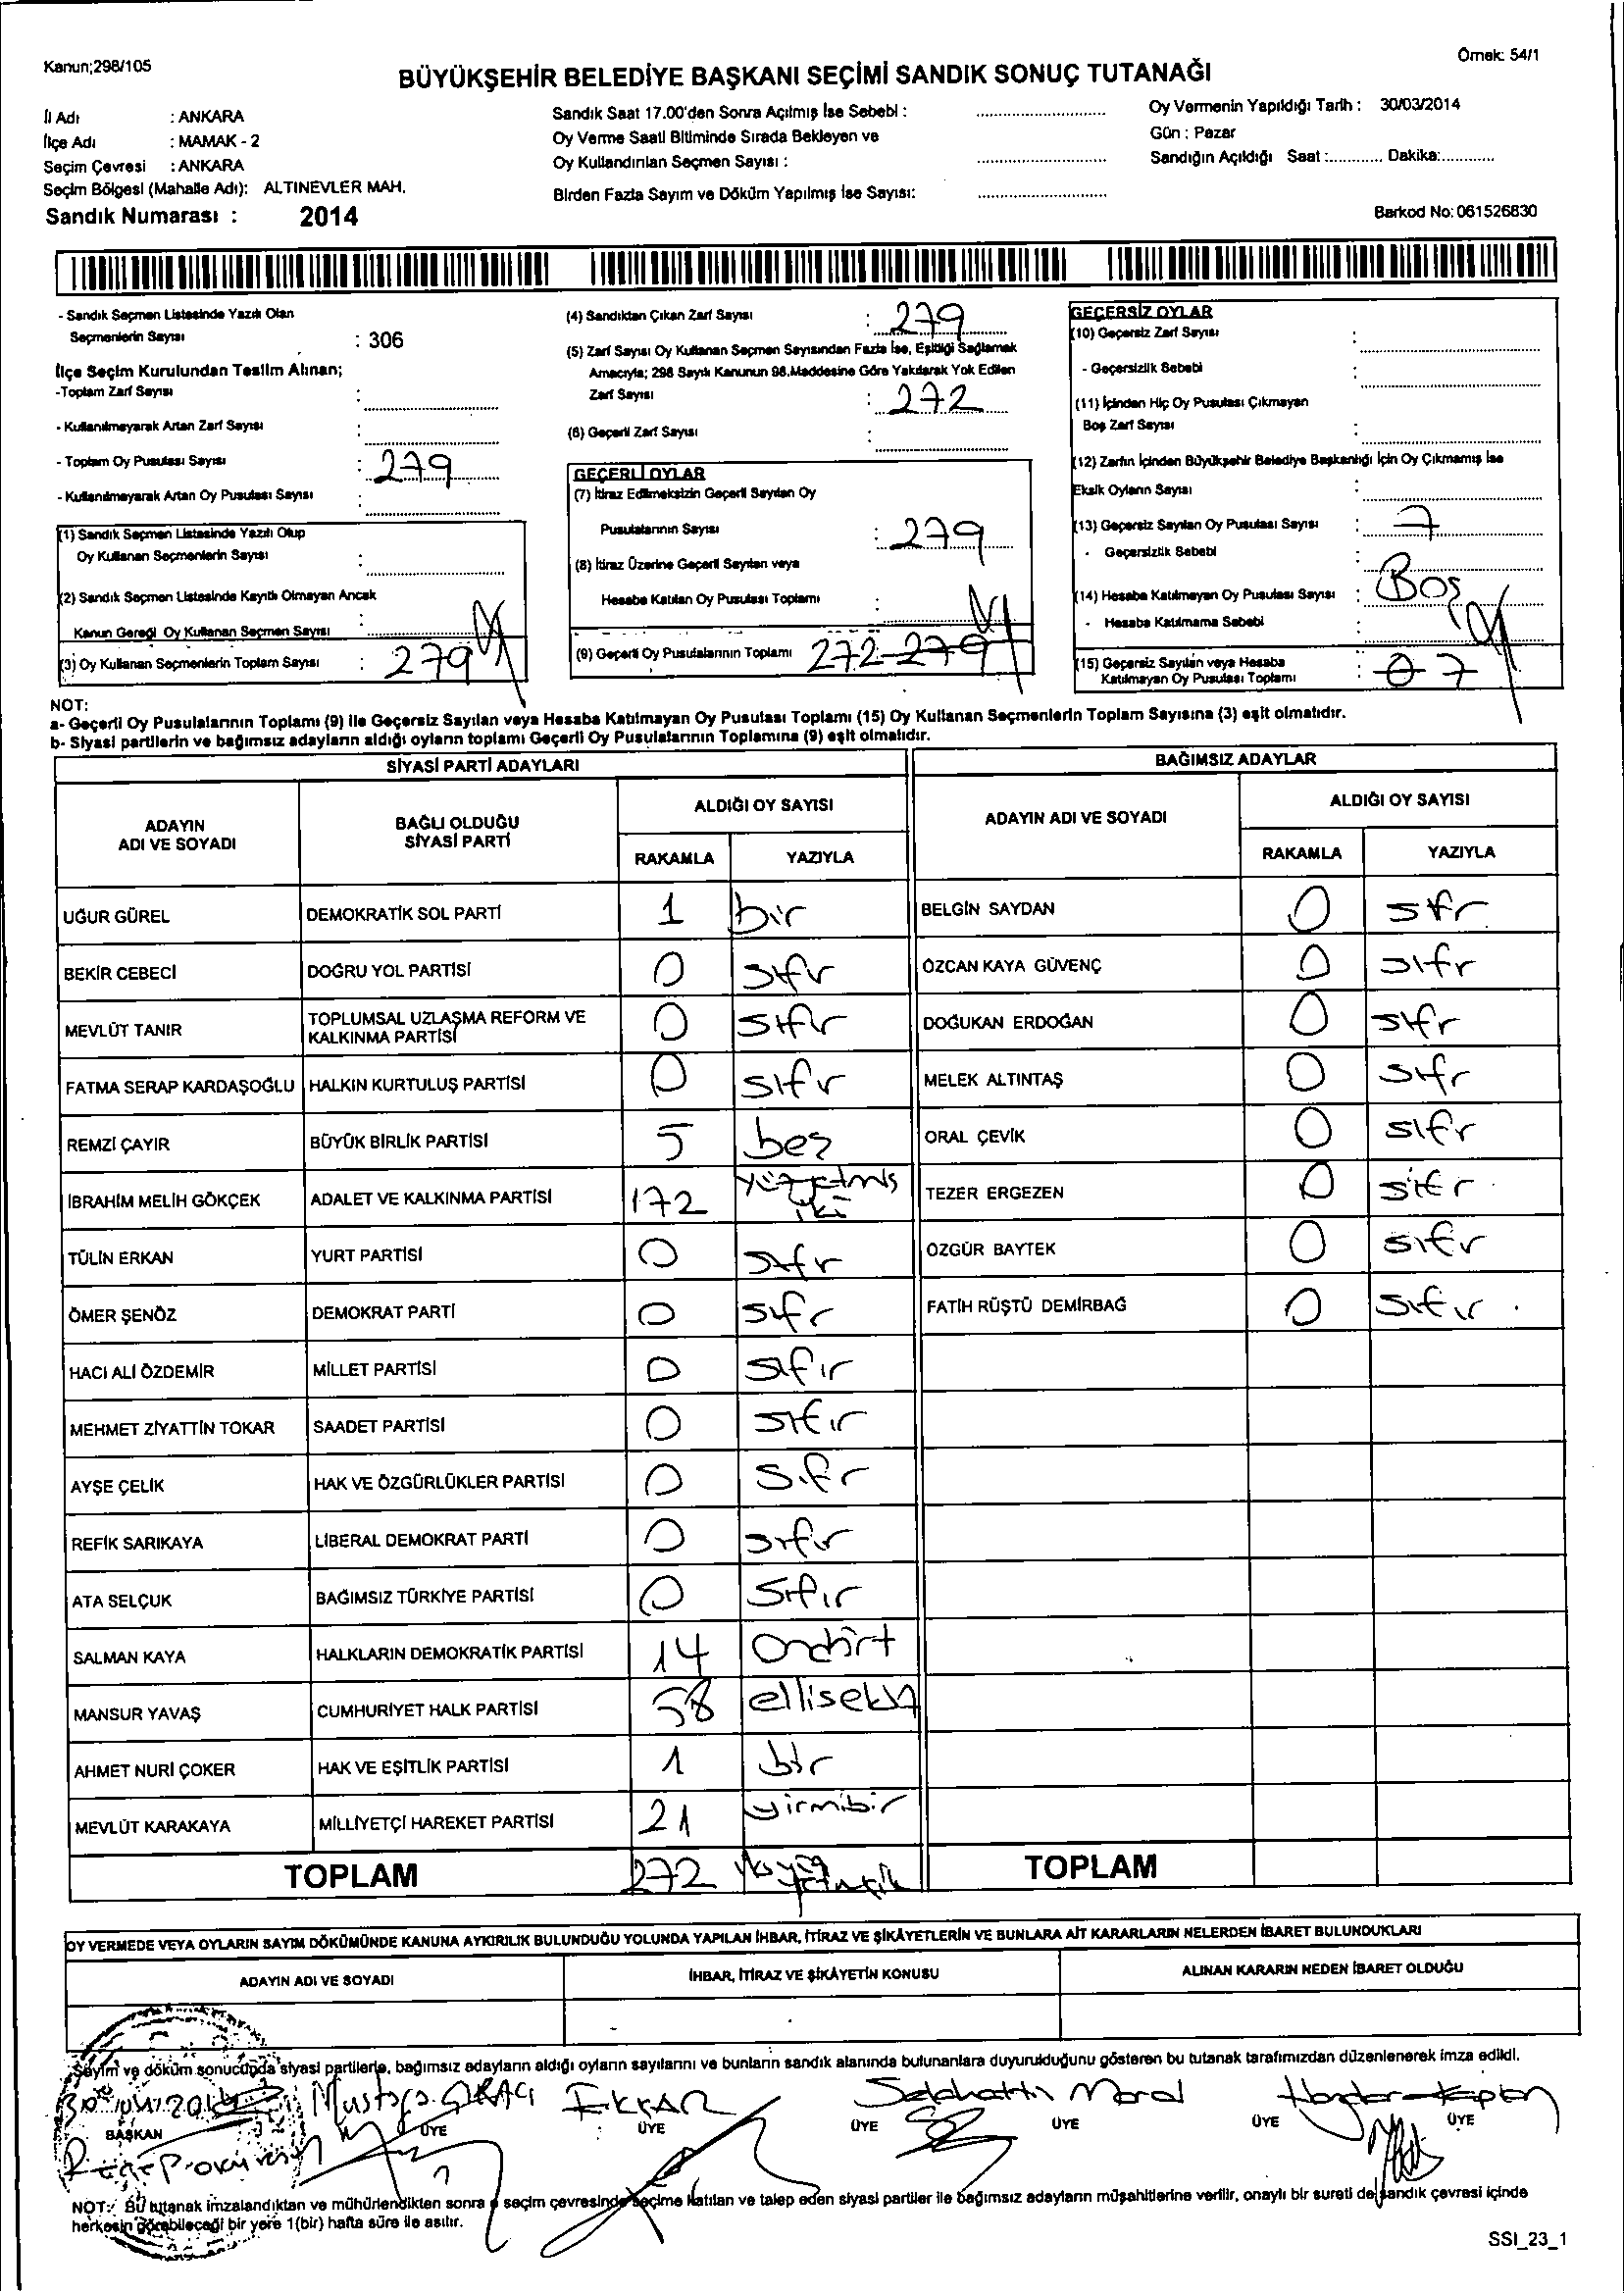 Kanun;298/105
Örnek: 54/1
BÜYÜKŞEHİR BELEDİYE BAŞKANI SEÇİMİ SANDIK SONUÇ TUTANAĞI
İl Adı : ANKARA
İlçe Adı : MAMAK - 2
Seçim Çevresi : ANKARA
Seçim Bölgesi (Mahalle Adı): ALTINEVLER MAH.
Sandık Numarası : 2014
Sandık Saat 17.00'den Sonra Açılmış İse Sebebi :
Oy Verme Saati Bitiminde Sırada Bekleyen ve
Oy Kullandırılan Seçmen Sayısı :
Birden Fazla Sayım ve Döküm Yapılmış İse Sayısı:
Oy Vermenin Yapıldığı Tarih : 30/03/2014
Gün : Pazar
Sandığın Açıldığı Saat :............ Dakika:............
Barkod No: 061526830
- Sandık Seçmen Listesinde Yazılı Olan
Seçmenlerin Sayısı : 306
İlçe Seçim Kurulundan Teslim Alınan;
-Toplam Zarf Sayısı :
- Kullanılmayarak Artan Zarf Sayısı :
- Toplam Oy Pusulası Sayısı : 279
- Kullanılmayarak Artan Oy Pusulası Sayısı :
(1) Sandık Seçmen Listesinde Yazılı Olup
Oy Kullanan Seçmenlerin Sayısı :
(2) Sandık Seçmen Listesinde Kayıtlı Olmayan Ancak
Kanun Gereği Oy Kullanan Seçmen Sayısı :
(3) Oy Kullanan Seçmenlerin Toplam Sayısı : 279
(4) Sandıktan Çıkan Zarf Sayısı : 279
(5) Zarf Sayısı Oy Kullanan Seçmen Sayısından Fazla İse, Eşitliği Sağlamak
Amacıyla; 298 Sayılı Kanunun 98.Maddesine Göre Yakılarak Yok Edilen
Zarf Sayısı : 272
(6) Geçerli Zarf Sayısı :
GEÇERLİ OYLAR
(7) İtiraz Edilmeksizin Geçerli Sayılan Oy
Pusulalarının Sayısı : 279
(8) İtiraz Üzerine Geçerli Sayılan veya
Hesaba Katılan Oy Pusulası Toplamı :
(9) Geçerli Oy Pusulalarının Toplamı 272 279
GEÇERSİZ OYLAR
(10) Geçersiz Zarf Sayısı :
- Geçersizlik Sebebi :
(11) İçinden Hiç Oy Pusulası Çıkmayan
Boş Zarf Sayısı :
(12) Zarfın İçinden Büyükşehir Belediye Başkanlığı İçin Oy Çıkmamış İse
Eksik Oyların Sayısı :
(13) Geçersiz Sayılan Oy Pusulası Sayısı : 7
- Geçersizlik Sebebi : Boş
(14) Hesaba Katılmayan Oy Pusulası Sayısı :
- Hesaba Katılmama Sebebi :
(15) Geçersiz Sayılan veya Hesaba
Katılmayan Oy Pusulası Toplamı : 0 7
NOT:
a- Geçerli Oy Pusulalarının Toplamı (9) ile Geçersiz Sayılan veya Hesaba Katılmayan Oy Pusulası Toplamı (15) Oy Kullanan Seçmenlerin Toplam Sayısına (3) eşit olmalıdır.
b- Siyasi partilerin ve bağımsız adayların aldığı oyların toplamı Geçerli Oy Pusulalarının Toplamına (9) eşit olmalıdır.
SİYASİ PARTİ ADAYLARI
ADAYIN ADI VE SOYADI
BAĞLI OLDUĞU SİYASİ PARTİ
ALDIĞI OY SAYISI
RAKAMLA YAZIYLA
UĞUR GÜREL DEMOKRATİK SOL PARTİ 1 bir
BEKİR CEBECİ DOĞRU YOL PARTİSİ 0 sıfır
MEVLÜT TANIR TOPLUMSAL UZLAŞMA REFORM VE KALKINMA PARTİSİ 0 sıfır
FATMA SERAP KARDAŞOĞLU HALKIN KURTULUŞ PARTİSİ 0 sıfır
REMZİ ÇAYIR BÜYÜK BİRLİK PARTİSİ 5 beş
İBRAHİM MELİH GÖKÇEK ADALET VE KALKINMA PARTİSİ 172 yüzyetmiş iki
TÜLİN ERKAN YURT PARTİSİ 0 sıfır
ÖMER ŞENÖZ DEMOKRAT PARTİ 0 sıfır
HACI ALİ ÖZDEMİR MİLLET PARTİSİ 0 sıfır
MEHMET ZİYATTİN TOKAR SAADET PARTİSİ 0 sıfır
AYŞE ÇELİK HAK VE ÖZGÜRLÜKLER PARTİSİ 0 sıfır
REFİK SARIKAYA LİBERAL DEMOKRAT PARTİ 0 sıfır
ATA SELÇUK BAĞIMSIZ TÜRKİYE PARTİSİ 0 sıfır
SALMAN KAYA HALKLARIN DEMOKRATİK PARTİSİ 14 ondört
MANSUR YAVAŞ CUMHURİYET HALK PARTİSİ 58 ellisekiz
AHMET NURİ ÇOKER HAK VE EŞİTLİK PARTİSİ 1 bir
MEVLÜT KARAKAYA MİLLİYETÇİ HAREKET PARTİSİ 21 yirmibir
TOPLAM 272
BAĞIMSIZ ADAYLAR
ADAYIN ADI VE SOYADI
ALDIĞI OY SAYISI
RAKAMLA YAZIYLA
BELGİN SAYDAN 0 sıfır
ÖZCAN KAYA GÜVENÇ 0 sıfır
DOĞUKAN ERDOĞAN 0 sıfır
MELEK ALTINTAŞ 0 sıfır
ORAL ÇEVİK 0 sıfır
TEZER ERGEZEN 0 sıfır
ÖZGÜR BAYTEK 0 sıfır
FATİH RÜŞTÜ DEMİRBAĞ 0 sıfır
TOPLAM
OY VERMEDE VEYA OYLARIN SAYIM DÖKÜMÜNDE KANUNA AYKIRILIK BULUNDUĞU YOLUNDA YAPILAN İHBAR, İTİRAZ VE ŞİKÂYETLERİN VE BUNLARA AİT KARARLARIN NELERDEN İBARET BULUNDUKLARI
ADAYIN ADI VE SOYADI İHBAR, İTİRAZ VE ŞİKÂYETİN KONUSU ALINAN KARARIN NEDEN İBARET OLDUĞU
Sayım ve döküm sonucunda siyasi partilerle, bağımsız adayların aldığı oyların sayılarını ve bunların sandık alanında bulunanlara duyurulduğunu gösteren bu tutanak tarafımızdan düzenlenerek imza edildi.
Mustafa Selahattin Maral
BAŞKAN ÜYE ÜYE ÜYE ÜYE ÜYE ÜYE
NOT: Bu tutanak imzalandıktan ve mühürlendikten sonra o seçim çevresinde seçime katılan ve talep eden siyasi partiler ile bağımsız adayların müşahitlerine verilir, onaylı bir sureti de sandık çevresi içinde
herkesin görebileceği bir yere 1(bir) hafta süre ile asılır.
SSI_23_1